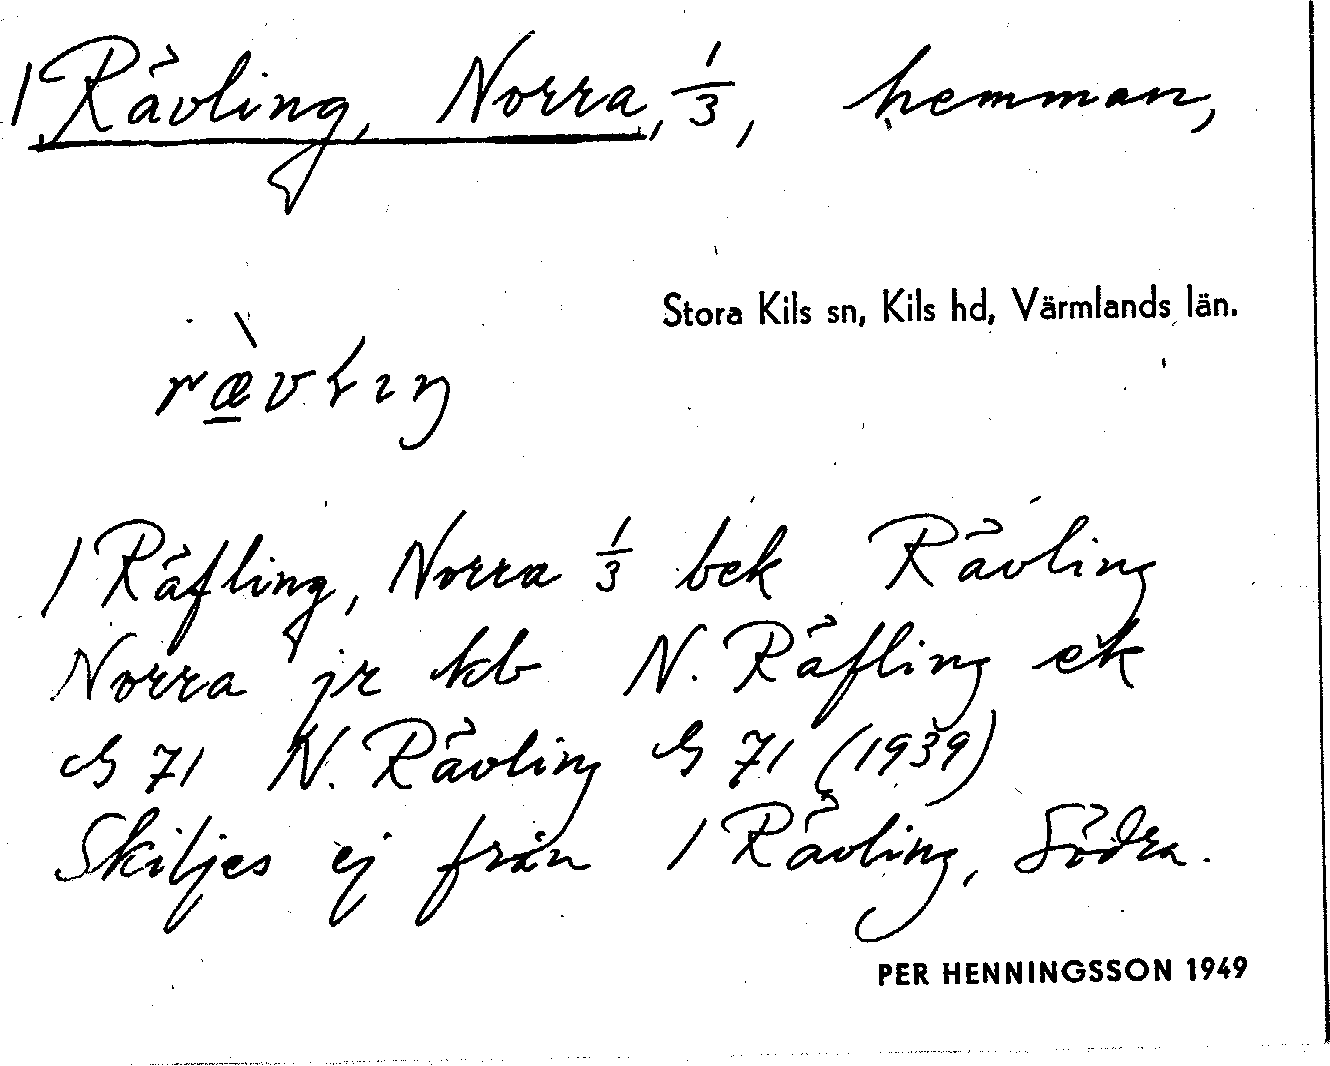 1 Rävling, Norra, 1/3, hemman,
Stora Kils sn, Kils hd, Värmlands län.
ræ̀vlıŋ
1 Räfling, Norra 1/3 bek Rävling
Norra jr kb N. Räfling ek
G 71 N. Rävling G 71 (1939)
Skiljes ej från 1 Rävling, Södra.
PER HENNINGSSON 1949